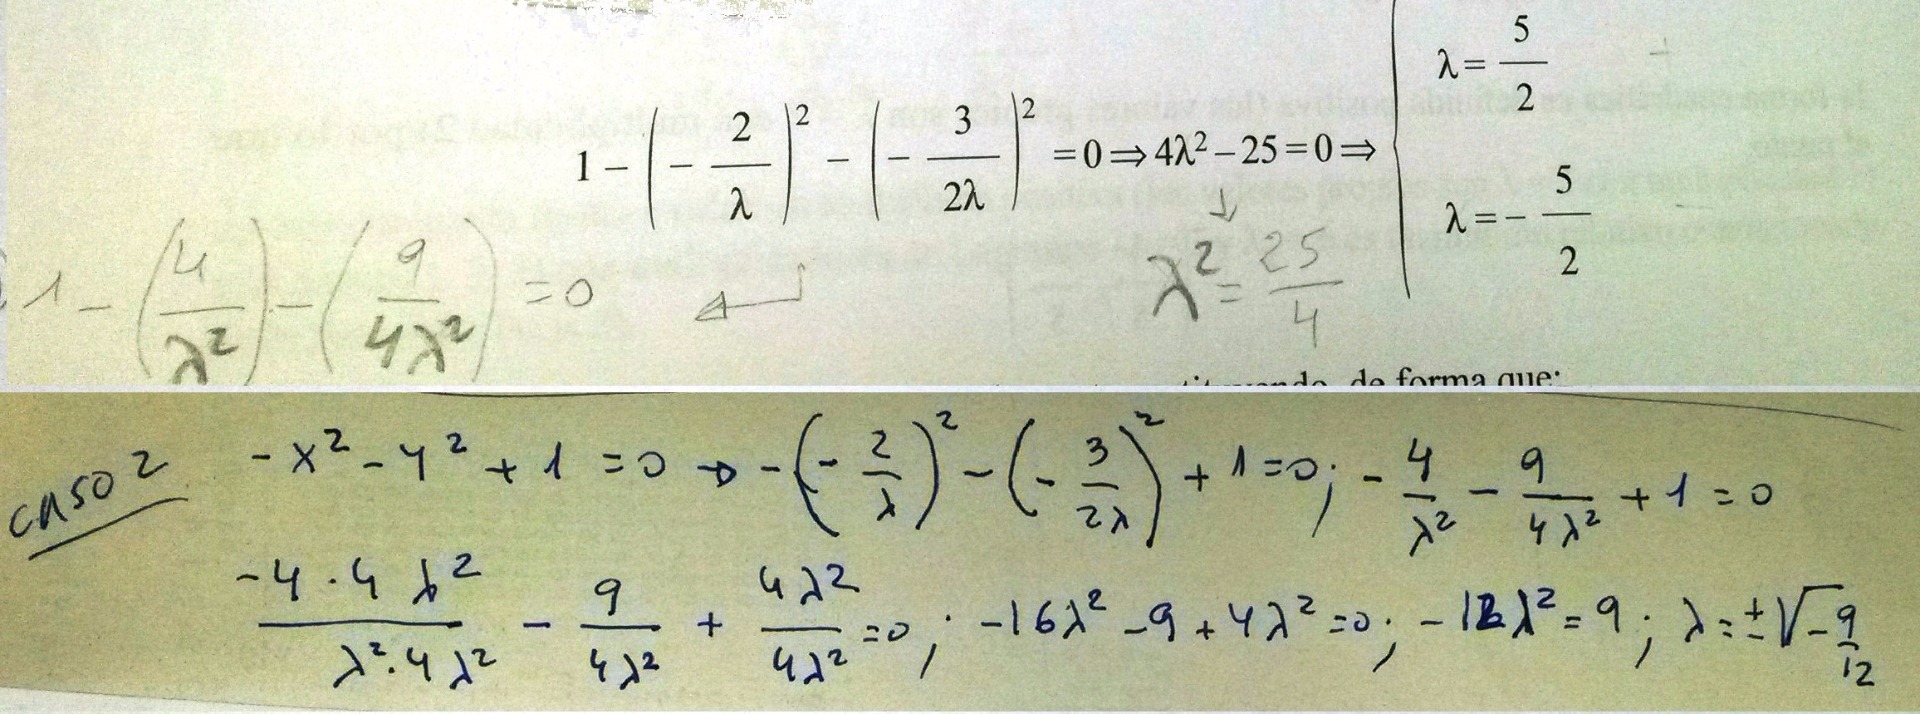 1 − (− 2/λ)² − (− 3/2λ)² = 0 ⇒ 4λ² − 25 = 0 ⇒ { λ = 5/2
λ = − 5/2
1 − (4/λ²) − (9/4λ²) = 0
λ² = 25/4
de forma que:
CASO 2 -x² - y² + 1 = 0 → -(- 2/λ)² - (- 3/2λ)² + 1 = 0; - 4/λ² - 9/4λ² + 1 = 0
-4·4λ²/λ²·4λ² - 9/4λ² + 4λ²/4λ² = 0; -16λ² - 9 + 4λ² = 0; -12λ² = 9; λ = ±√-9/12